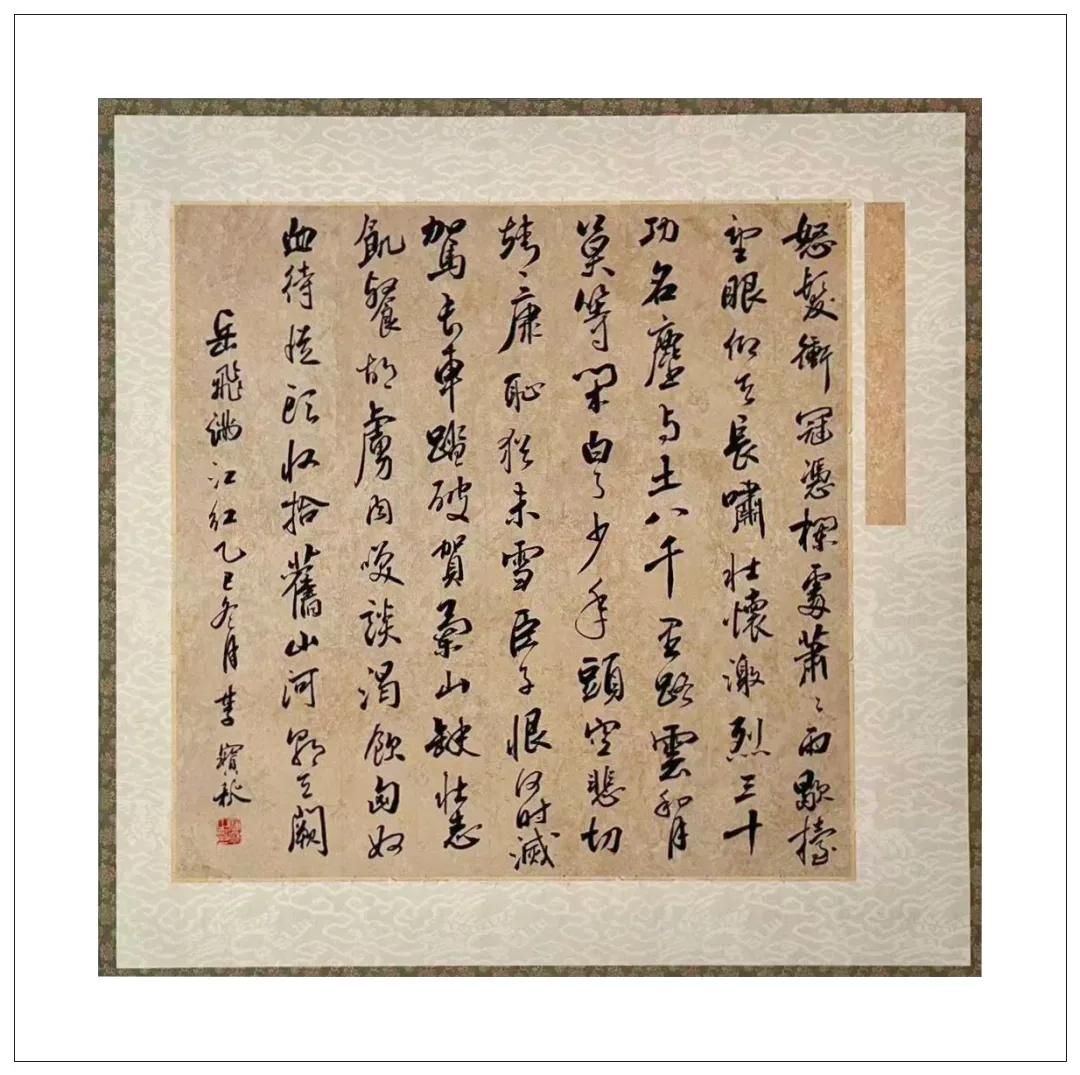 怒髮衝冠憑欄處蕭〻雨歇擡
望眼仰天長嘯壯懷激烈三十
功名塵与土八千里路雲和月
莫等閑白了少年頭空悲切
靖〻康恥猶未雪臣子恨何时滅
駕長車踏破賀蘭山缺壯志
飢餐胡虜肉笑談渴飲匈奴
血待從頭收拾舊山河朝天闕
岳飛滿江紅乙巳冬月李寶秋